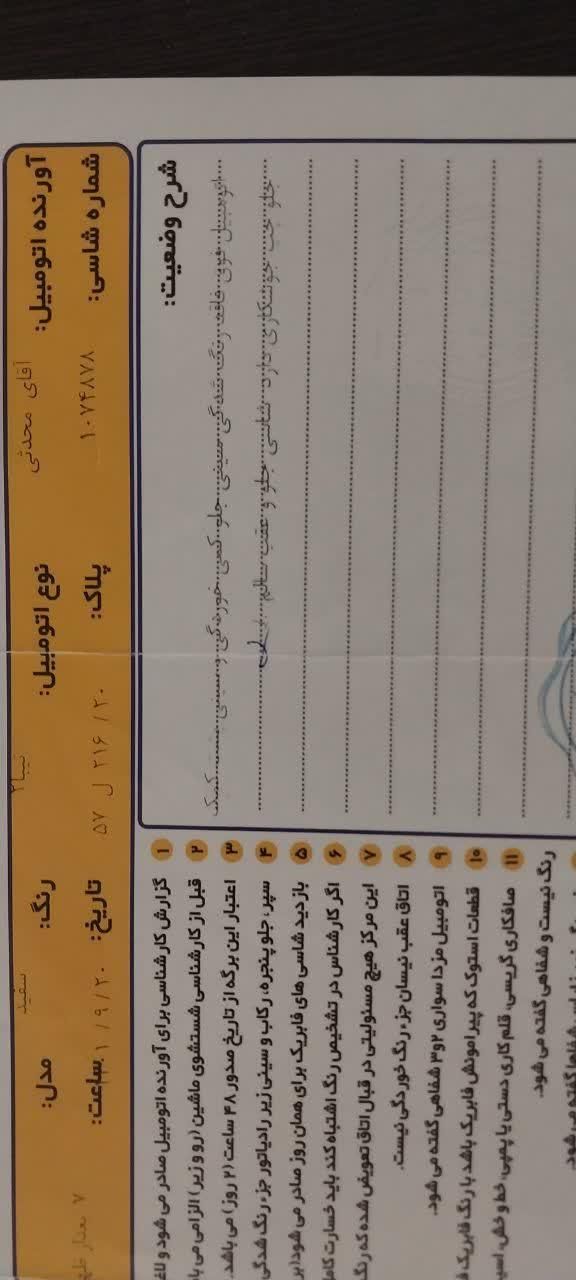 آورنده اتومبیل: آقای محدثی نوع اتومبیل: تیبا ۲ رنگ: سفید مدل:
شماره شاسی: ۱۰۷۴۸۷۸ پلاک: ۵۷ ل ۲۱۶ / ۲۰ تاریخ: ۱ / ۹ / ۲۰ ساعت: ۷
شرح وضعیت:
اتومبیل فوق فاقد رنگ شدگی سینی جلو کمی خوردگی و سینی کمک
جلو چپ جوشکاری دارد شاسی جلو و عقب سالم
۱ گزارش کارشناسی برای آورنده اتومبیل صادر می شود و
۲ قبل از کارشناسی شستشوی ماشین (رو و زیر) الزامی می
۳ اعتبار این برگه از تاریخ صدور ۴۸ ساعت (۲ روز) می باشد.
۴ سپر، جلو پنجره، رکاب و سینی زیر رادیاتور جزء رنگ شدگی
۵ بازدید شاسی های فابریک برای همان روز صادر می شود
۶ اگر کارشناس در تشخیص رنگ اشتباه کند باید خسارت
۷ این مرکز هیچ مسئولیتی در قبال اتاق تعویض شده که رنگ
۸ اتاق عقب نیسان جزء رنگ خوردگی نیست.
۹ اتومبیل مزدا سواری ۲و۳ شفاهی گفته می شود.
۱۰ قطعات استوک که پیرامونش فابریک باشد با رنگ فابریک
۱۱ صافکاری گریسی، قلم کاری دستی یا پمپی، خط و خش،
رنگ نیست و شفاهی گفته می شود.